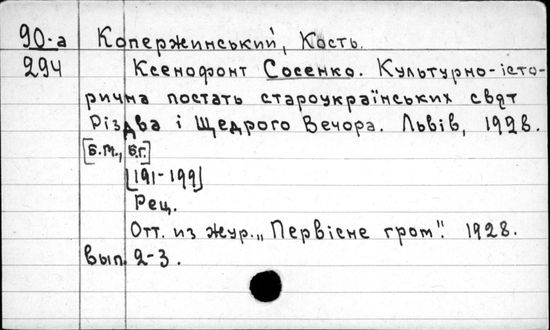 90-а Копержинський, Кость.
294 Ксенофонт Сосенко. Культурно-істо-
рична постать староукраїнських свят
Різдва і Щедрого Вечора. Львів, 1928.
[Б.м., Б.г.]
[191-199]
Рец.
Отт. из жур. „Первісне гром". 1928.
вып. 2-3.